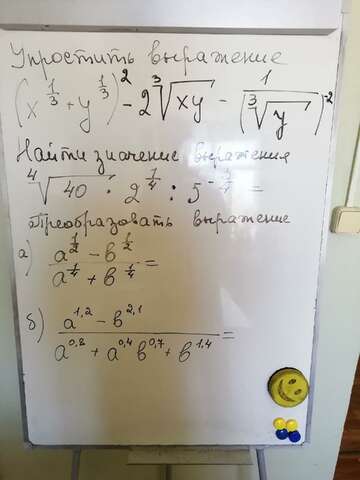 Упростить выражение
(x^{1/3} + y^{1/3})^2 - 2∛(xy) - 1/(∛y)^{-2}
Найти значение выражения
∜40 · 2^{1/4} : 5^{-3/4} =
Преобразовать выражение
а) (a^{1/2} - b^{1/2})/(a^{1/4} + b^{1/4}) =
б) (a^{1,2} - b^{2,1})/(a^{0,8} + a^{0,4} b^{0,7} + b^{1,4}) =